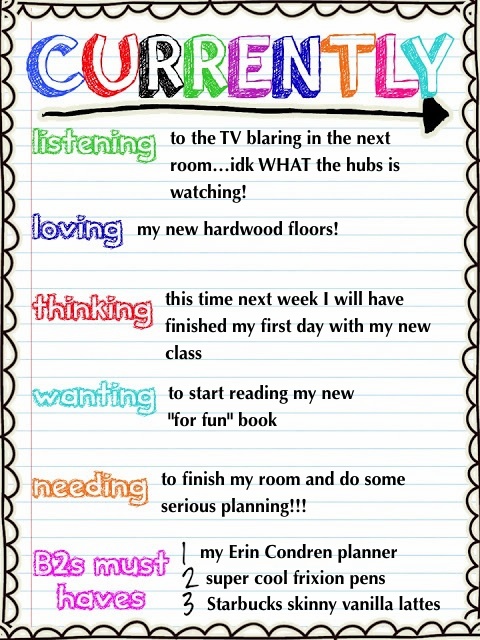 CURRENTLY
listening to the TV blaring in the next
room...idk WHAT the hubs is
watching!
loving my new hardwood floors!
thinking this time next week I will have
finished my first day with my new
class
wanting to start reading my new
"for fun" book
needing to finish my room and do some
serious planning!!!
B2s must haves
1 my Erin Condren planner
2 super cool frixion pens
3 Starbucks skinny vanilla lattes